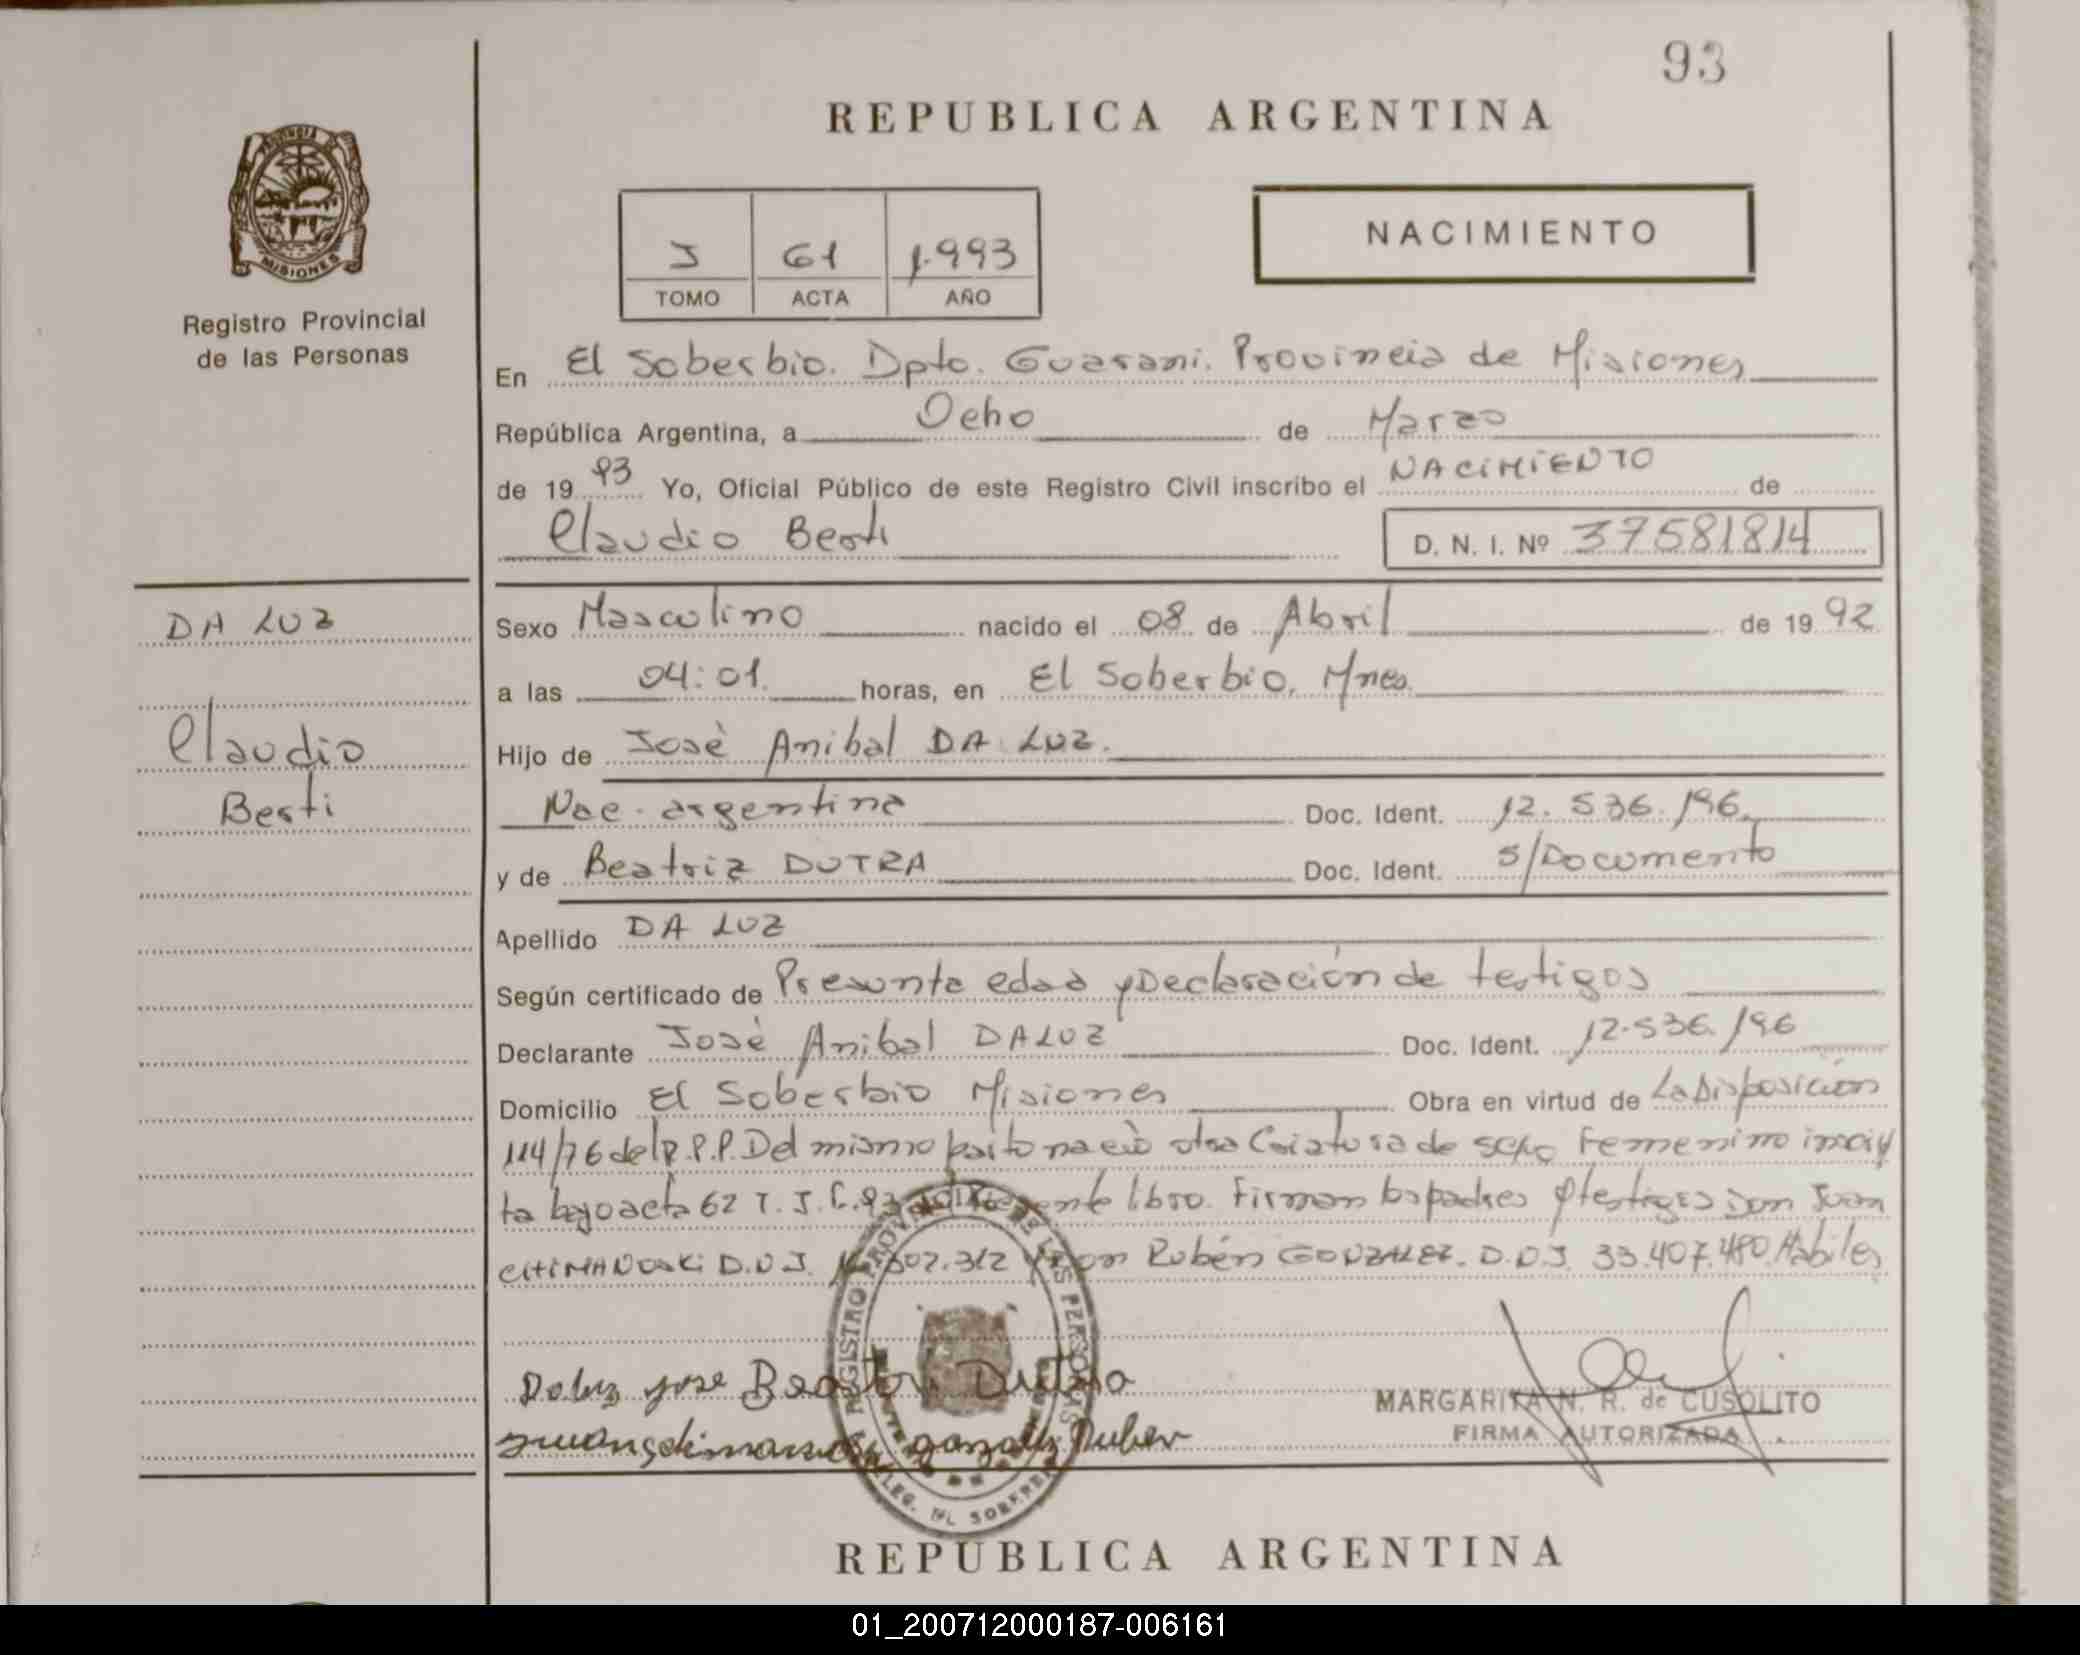 93
REPUBLICA ARGENTINA
PROVINCIA DE
MISIONES
Registro Provincial
de las Personas
J 61 1.993
TOMO ACTA AÑO
NACIMIENTO
En El Soberbio. Dpto. Guarani. Provincia de Misiones
República Argentina, a Ocho de Marzo
de 1993 Yo, Oficial Público de este Registro Civil inscribo el NACIMIENTO de
Claudio Berti
D. N. I. Nº 37581814
DA LUZ
Claudio
Berti
Sexo Masculino nacido el 08 de Abril de 1992
a las 04:01. horas, en El Soberbio, Mnes.
Hijo de José Anibal DA LUZ.
Nac. argentina Doc. Ident. 12.536.196
y de Beatriz DUTRA Doc. Ident. S/Documento
Apellido DA LUZ
Según certificado de Presunta edad y Declaración de testigos
Declarante José Anibal DA LUZ Doc. Ident. 12.536.196
Domicilio El Soberbio Misiones Obra en virtud de La Disposición
114/76 del R.P.P. Del mismo parto nació otra Criatura de sexo Femenino inscip
ta bajo acta 62 T. J. 93 del libro. Firman los padres y testigos Don Juan
CHIMANOSKi D.N.I. 302.312 y Don Rubén GONZALEZ. D.N.I. 33.407.480. Habiles
Daluz Jose Beatriz Dutra
gonzalez Ruben
REGISTRO PROVINCIAL DE LAS PERSONAS
DELEG. EL SOBERBIO
MARGARITA N. R. de CUSOLITO
FIRMA AUTORIZADA
REPUBLICA ARGENTINA
01_200712000187-006161